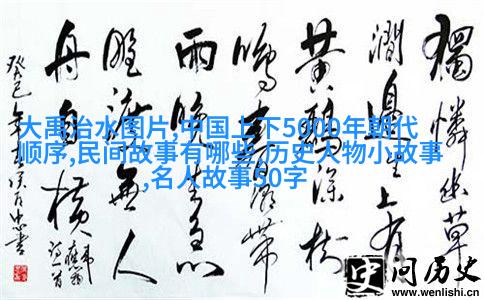 大禹治水图片,中国上下5000年朝代
顺序,民间故事有哪些,历史人物小故事
,名人故事50字
獨憐幽草
澗邊生上有
黃鸝深樹
鳴春潮帶
雨晚來急
野渡無人
舟自橫
癸巳年
史问历史
www.wenlishi.cn